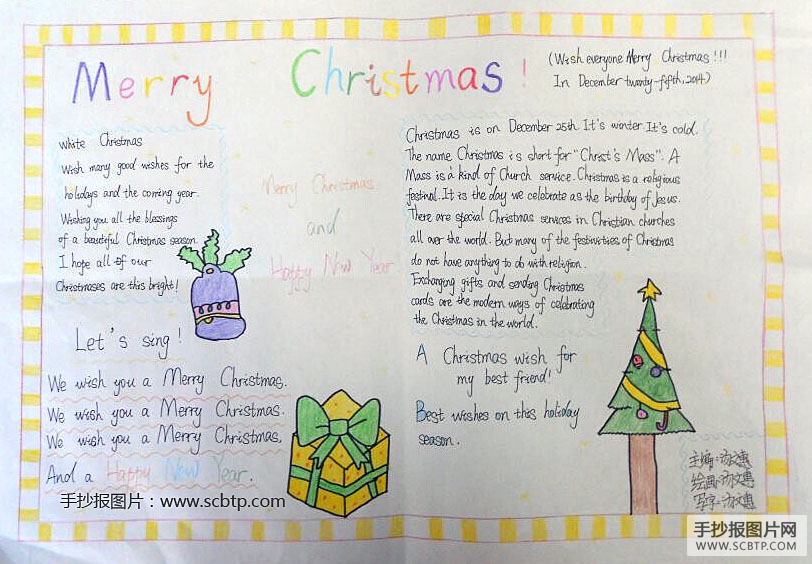 Merry Christmas!
(Wish everyone Merry Christmas!!!
In December twenty-fifth, 2014)
White Christmas
Wish many good wishes for the
holidays and the coming year.
Wishing you all the blessings
of a beautiful Christmas season.
I hope all of our
Christmases are this bright!
Merry Christmas
and
Happy New Year
Let's sing!
We wish you a Merry Christmas.
We wish you a Merry Christmas.
We wish you a Merry Christmas,
And a Happy New Year.
Christmas is on December 25th. It's winter It's cold.
The name Christmas is short for "Christ's Mass". A
Mass is a kind of Church service. Christmas is a religious
festival. It is the day we celebrate as the birthday of Jesus.
There are special Christmas services in Christian churches
all over the world. But many of the festivities of Christmas
do not have anything to do with religion.
Exchanging gifts and sending Christmas
cards are the modern ways of celebrating
the Christmas in the world.
A Christmas wish for
my best friend!
Best wishes on this holiday
season.
主编:
绘画:
写字:
手抄报图片：www.scbtp.com
手抄报图片网
WWW.SCBTP.COM